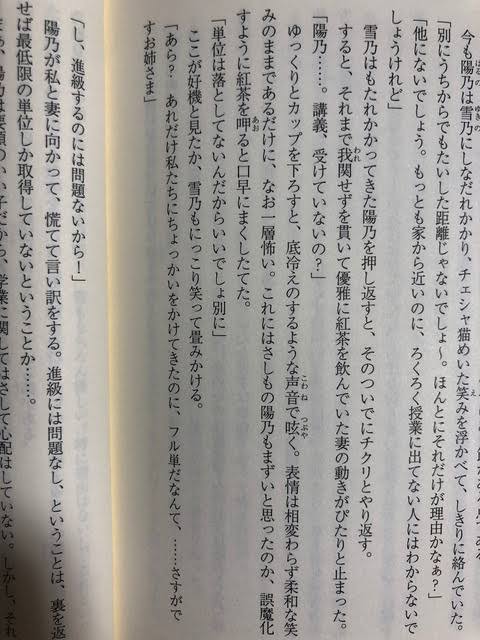 今も陽乃は雪乃にしなだれかかり、チェシャ猫めいた笑みを浮かべて、しきりに絡んでいた。
「別にうちからでもたいした距離じゃないでしょ〜。ほんとにそれだけが理由かなぁ?」
「他にないでしょう。もっとも家から近いのに、ろくろく授業に出てない人にはわからないで
しょうけれど」
雪乃はもたれかかってきた陽乃を押し返すと、そのついでにチクリとやり返す。
すると、それまで我関せずを貫いて優雅に紅茶を飲んでいた妻の動きがぴたりと止まった。
「陽乃……。講義、受けていないの?」
ゆっくりとカップを下ろすと、底冷えのするような声音で呟く。表情は相変わらず柔和な笑
みのままであるだけに、なお一層怖い。これにはさしもの陽乃もまずいと思ったのか、誤魔化
すように紅茶を呷ると口早にまくしたてた。
「単位は落としてないんだからいいでしょ別に」
ここが好機と見たか、雪乃もにっこり笑って畳みかける。
「あら? あれだけ私たちにちょっかいをかけてきたのに、フル単だなんて、……さすがで
すお姉さま」
「し、進級するのには問題ないから!」
陽乃が私と妻に向かって、慌てて言い訳をする。進級には問題なし、ということは、裏を返
せば最低限の単位しか取得していないということか……。
まあ、陽乃は要領のいい子だから、学業に関してはさして心配はしていない。しかし、それ